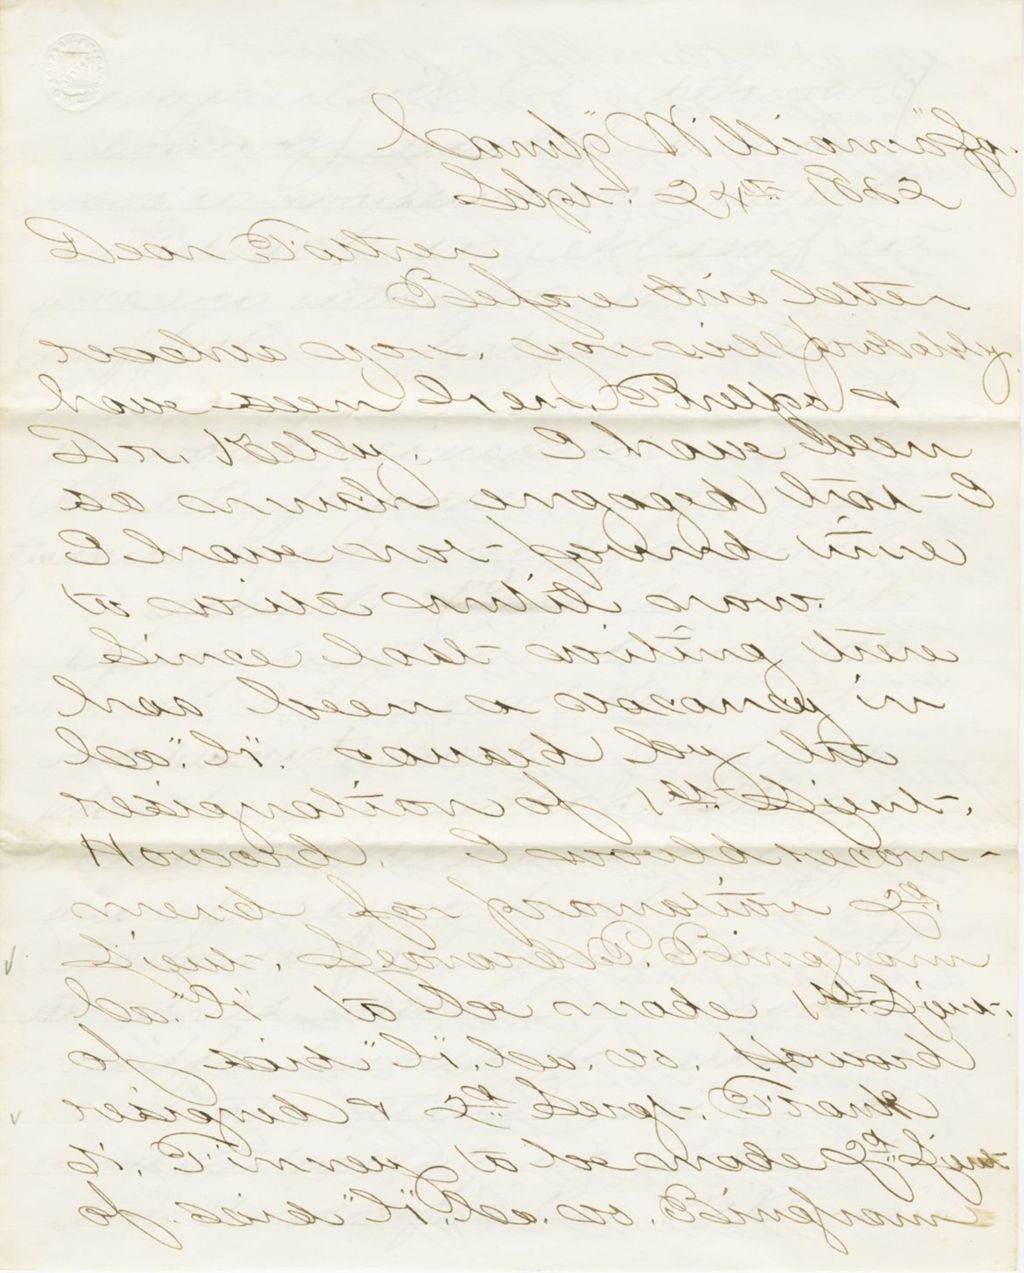 Camp Williams
Sept. 24th 1862
Dear
Before this letter
reaches you, you will probably
have seen &
Dr. Kelly. I have been
so much engaged that I
have not found time
to write until now.
Since last writing there
has been a vacancy in
Co. "H" caused by the
resignation of 1st Lieut.
Howard. I would recom-
mend for promotion 2d
Lieut. Bingham
Co. "H" to be made 1st Lieut.
of Co. "H" vice Howard
resigned & Sergt. Frank
to be made 2d Lieut
of Co. "H" vice Bingham